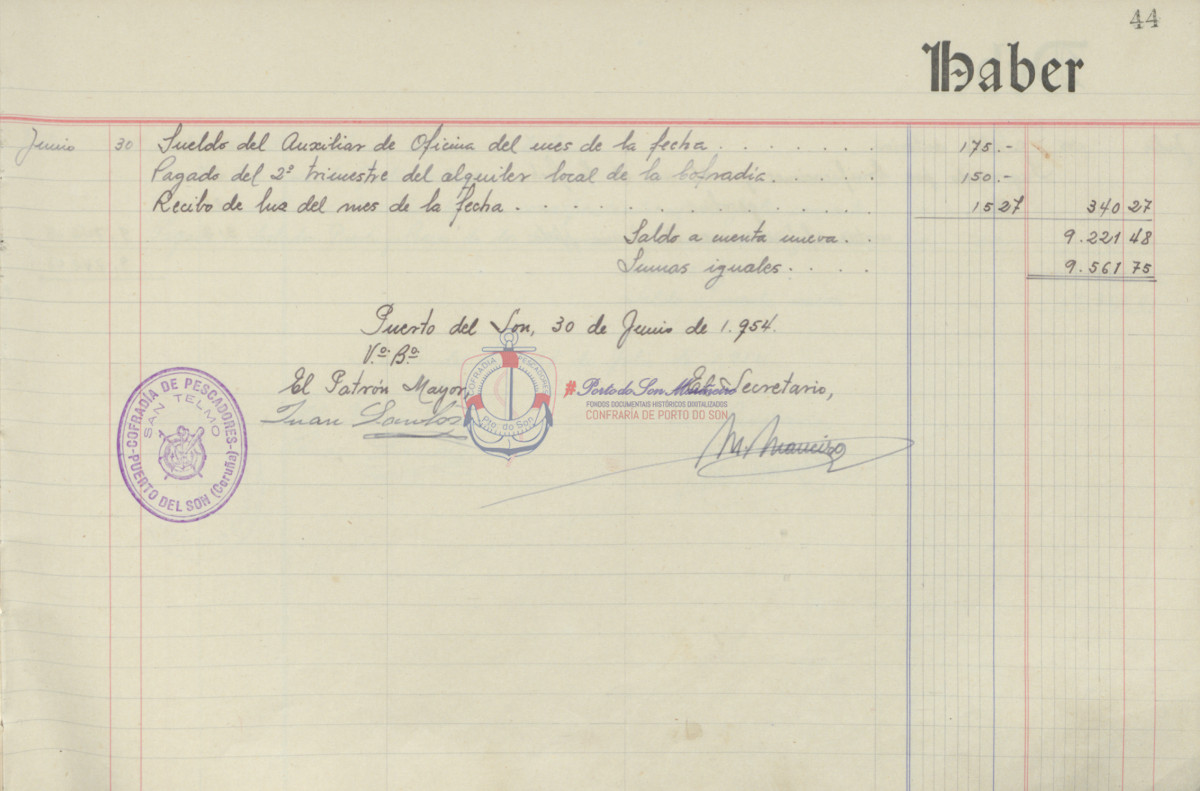 44
Haber
Junio 30 Sueldo del Auxiliar de Oficina del mes de la fecha . . . . . . . 175.-
Pagado del 2º trimestre del alquiler local de la Cofradía . . . . . 150.-
Recibo de luz del mes de la fecha . . . . . . . . . . . . 15 27 340 27
Saldo a cuenta nueva . . 9.221 48
Sumas iguales . . . . . 9.561 75
Puerto del Son, 30 de Junio de 1.954.
V.º B.º
El Patrón Mayor, El Secretario,
Juan Santos
COFRADÍA DE PESCADORES
SAN TELMO
PUERTO DEL SON (Coruña)
COFRADIA PESCADORES
Pto. do Son
#Porto do Son Mariñeiro
FONDOS DOCUMENTAIS HISTÓRICOS DIGITALIZADOS
CONFRARÍA DE PORTO DO SON